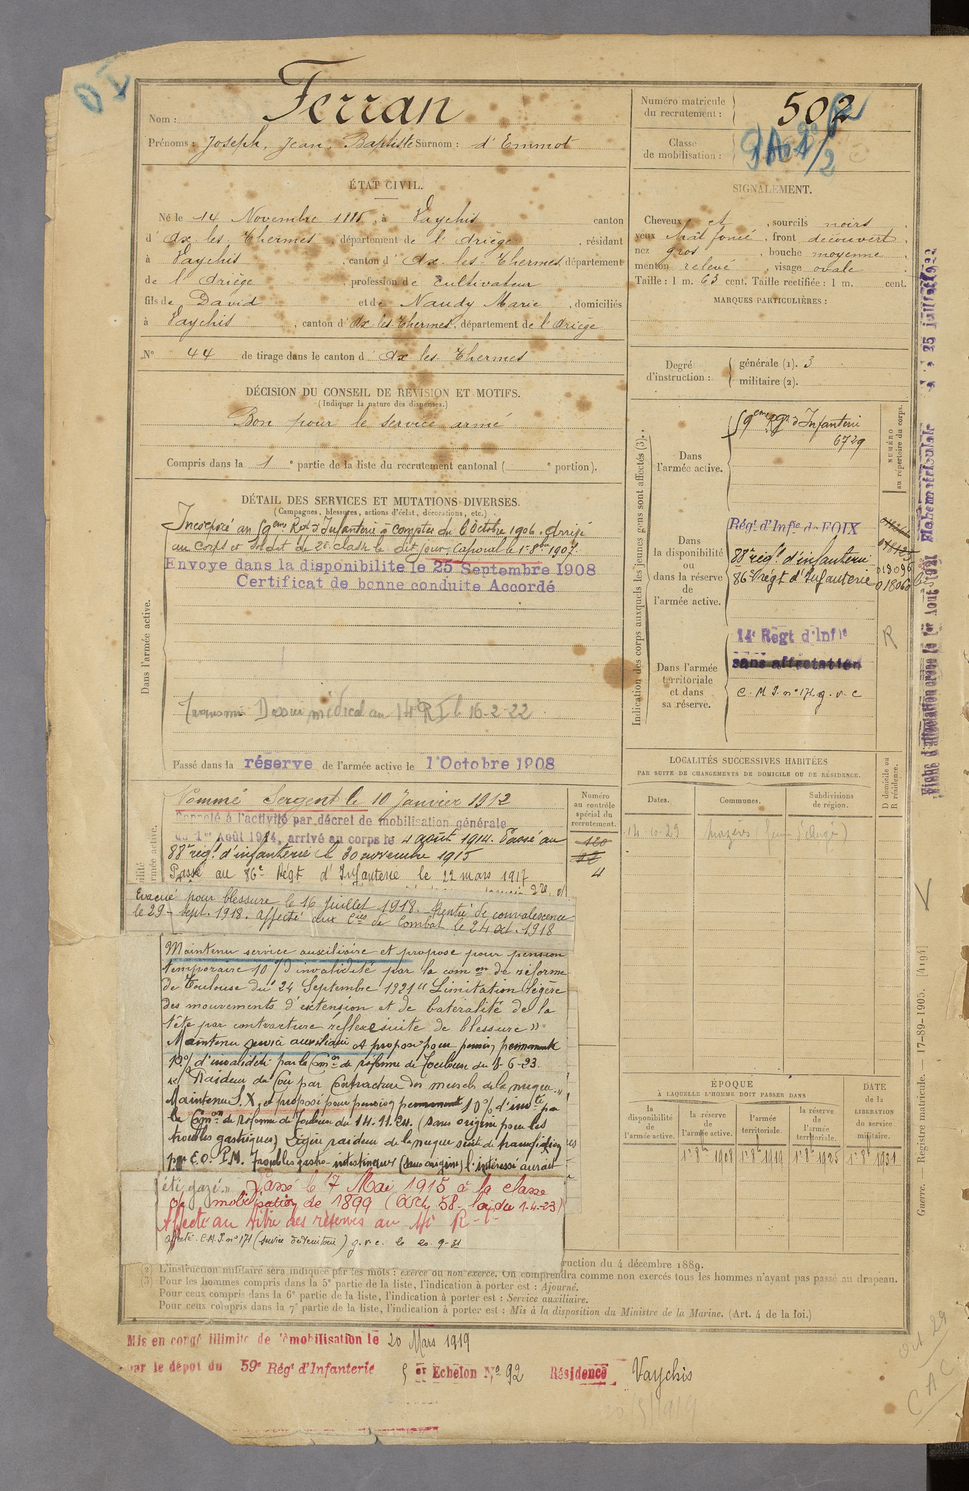 Ferran
Nom :
Prénoms : Joseph, Jean, Baptiste Surnom : d'Emmot
Numéro matricule
du recrutement :
502
Classe
de mobilisation :
ÉTAT CIVIL.
Né le 14 Novembre 1885, à Vaychis canton
d' Ax les Thermes, département de l'Ariège, résidant
à Vaychis, canton d' Ax les Thermes, département
de l'Ariège, profession de Cultivateur
fils de David et de Naudy Marie, domiciliés
à Vaychis, canton d' Ax les Thermes, département de l'Ariège
N° 44 de tirage dans le canton d' Ax les Thermes
SIGNALEMENT.
Cheveux et, sourcils noirs
yeux chât foncé, front découvert,
nez gros, bouche moyenne
menton relevé, visage ovale
Taille : 1 m. 63 cent. Taille rectifiée : 1 m. cent.
MARQUES PARTICULIÈRES :
Degré
d'instruction :
générale (1). 3
militaire (2).
DÉCISION DU CONSEIL DE RÉVISION ET MOTIFS.
(Indiquer la nature des dispenses.)
Bon pour le service armé
Compris dans la 1e partie de la liste du recrutement cantonal ( e portion).
DÉTAIL DES SERVICES ET MUTATIONS DIVERSES.
(Campagnes, blessures, actions d'éclat, décorations, etc.)
Incorporé au 59eme Rgt d'Infanterie à compter du 6 Octobre 1906. Arrivé
au corps et soldat de 2e classe le dit jour, Caporal le 1er 8bre 1907.
Envoyé dans la disponibilité le 25 Septembre 1908
Certificat de bonne conduite Accordé
Dans l'armée active.
Transmis Dossier médical au 14 RI le 16-2-22
Passé dans la réserve de l'armée active le 1er Octobre 1908
Indication des corps auxquels les jeunes gens sont affectés (3).
Dans
l'armée active.
59eme Rgt d'Infanterie
6729
NUMÉRO
au répertoire du corps.
Dans
la disponibilité
ou
dans la réserve
de
l'armée active.
Régt d'Infie de FOIX
83e régt d'infanterie
86e régt d'Infanterie
018096
018060
Dans l'armée
territoriale
et dans
sa réserve.
14e Régt d'Infie
sans affectation
C. M. I. n° 171 g. v. c
R
LOCALITÉS SUCCESSIVES HABITÉES
PAR SUITE DE CHANGEMENTS DE DOMICILE OU DE RÉSIDENCE.
Dates.
Communes.
Subdivisions
de région.
D domicile ou
R résidence.
Nommé Sergent le 10 Janvier 1912
Rappelé à l'activité par décret de mobilisation générale
du 1er Août 1914, arrivé au corps le 4 août 1914. Passé au
83e régt d'infanterie le 30 novembre 1915
Passé au 86e Régt d'Infanterie le 22 mars 1917
Numéro
au contrôle
spécial du
recrutement.
4
Evacué pour blessure le 16 Juillet 1918. Rentré de convalescence
le 29 Sept. 1918. Affecté aux Cies de Combat le 24 oct. 1918
Maintenu service auxiliaire et proposé pour pension
temporaire 10 % d'invalidité par la comon de réforme
de Toulouse du 24 Septembre 1921 "Limitation légère
des mouvements d'extension et de latéralité de la
tête par contracture réflexe suite de blessure"
Maintenu service auxiliaire et proposé pour pension permanente
10% d'invalidité par la Comon de réforme de Toulouse du 8-6-23
Raideur du Cou par Contracture des muscles de la nuque
Maintenu S.X. et proposé pour pension permanente 10% d'invté par
la Comon de Réforme de Toulouse du 14.11.24. (sans origine pour les
troubles gastriques) Légère raideur de la nuque suite de transfixion
par E.O. P.M. Troubles gastro-intestinaux (sans origine) l'intéressé aurait
été gazé.. Passé le 7 Mai 1915 à la classe
de mobilisation de 1899 (Art. 58. Loi du 1-4-23)
Affecté au titre des réserves au 14e R.I.
Affecté C.M.I n° 171 (service territorial) g.v.c. le 20-9-31
ÉPOQUE
À LAQUELLE L'HOMME DOIT PASSER DANS
la
disponibilité
de
l'armée active.
la réserve
de
l'armée active.
l'armée
territoriale.
la réserve
de
l'armée
territoriale.
DATE
de la
LIBÉRATION
du service
militaire.
1er 8bre 1908
1er 8bre 1919
1er 8bre 1925
1er 8bre 1931
ruction du 4 décembre 1889.
(2) L'instruction militaire sera indiquée par les mots : exercé ou non exercé. On comprendra comme non exercés tous les hommes n'ayant pas passé au drapeau.
(3) Pour les hommes compris dans la 5e partie de la liste, l'indication à porter est : Ajourné.
Pour ceux compris dans la 6e partie de la liste, l'indication à porter est : Service auxiliaire.
Pour ceux compris dans la 7e partie de la liste, l'indication à porter est : Mis à la disposition du Ministre de la Marine. (Art. 4 de la loi.)
Mis en congé illimité de démobilisation le 20 Mars 1919
par le dépôt du 59e Régt d'Infanterie 5 er Echelon N° 92 Résidence Vaychis
Guerre. — Registre matricule. — 17-89-1905. [4196]
C A C